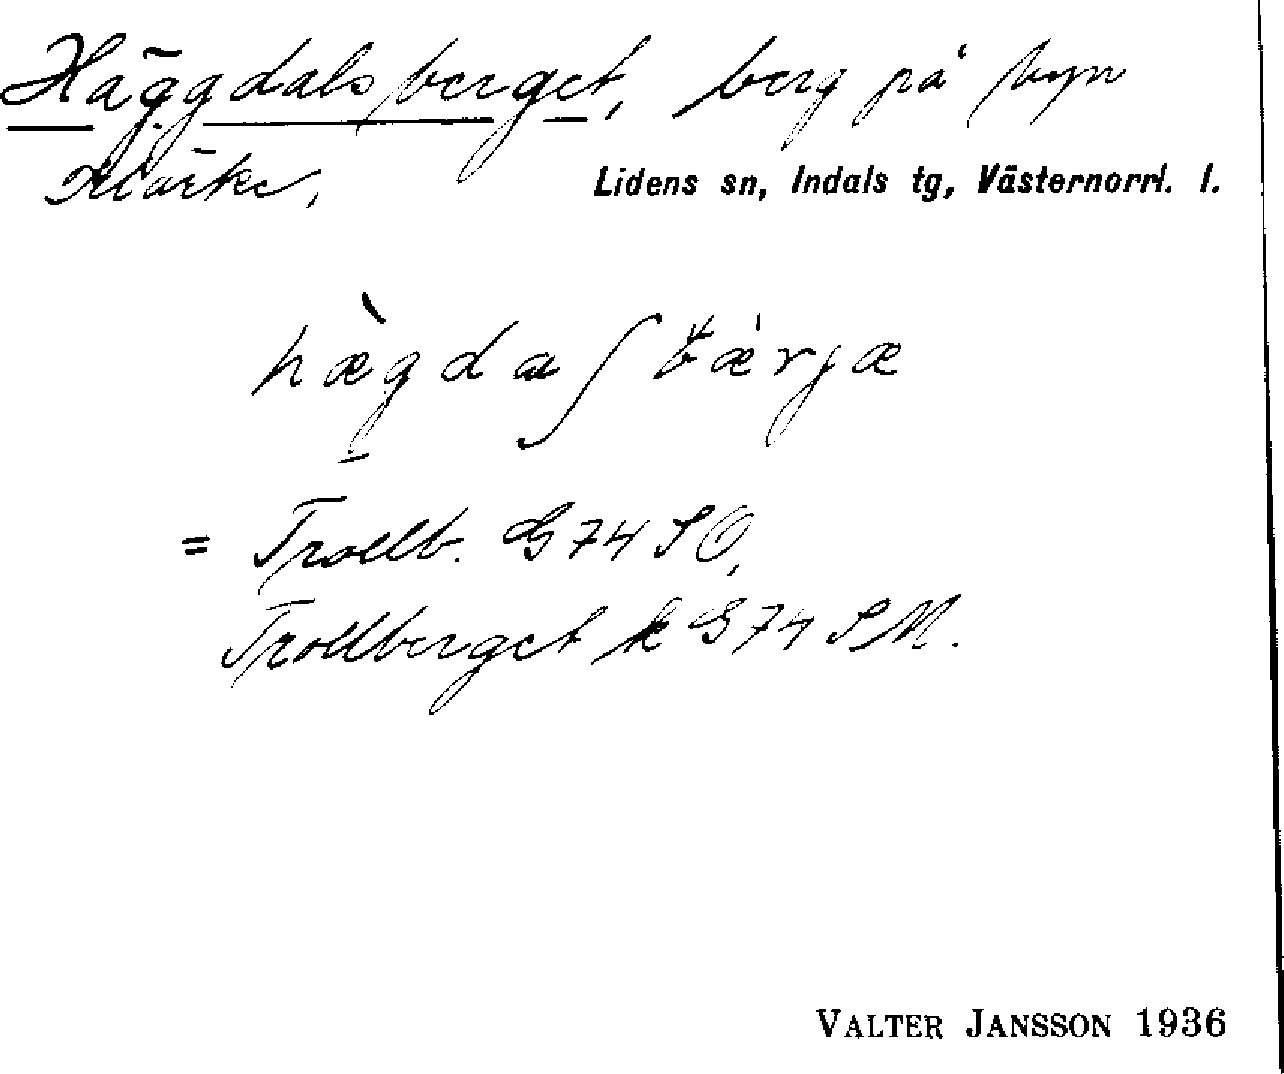 Häggdalsberget, berg på byn
Märke, Lidens sn, Indals tg, Västernorrl. l.
hæ̀gdaʃbæ̀rjæ
= Trollb. G74 SO,
Trollberget k G74 SM.
VALTER JANSSON 1936